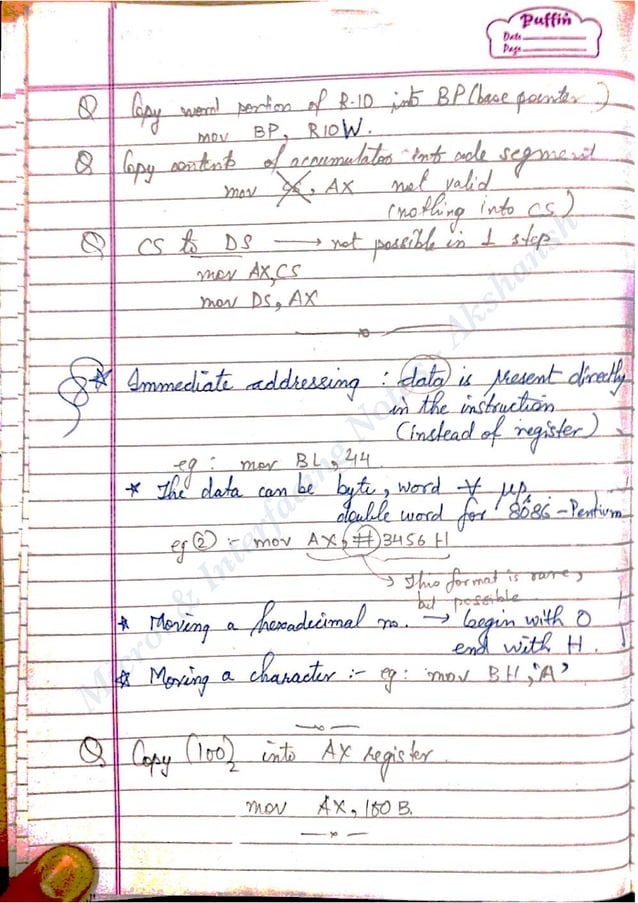 Puffin
Date
Page
Q Copy word portion of R-10 into BP (base pointer)
mov BP, R10W.
Q Copy contents of accumulator into code segment
mov CS, AX not valid
(nothing into CS)
Q CS to DS → not possible in 1 step
mov AX, CS
mov DS, AX
* Immediate addressing : data is present directly
in the instruction
(instead of register)
eg : mov BL, 44
* The data can be byte, word ∀ μp.
double word for 8086 - Pentium
eg ② :- mov AX, #3456 H
→ This format is rare,
but possible
* Moving a hexadecimal no. → begin with 0
end with H.
* Moving a character :- eg: mov BH, 'A'
Q. Copy (100)₂ into AX register.
mov AX, 100 B.
Micros & Interfacing Notes - Akshansh